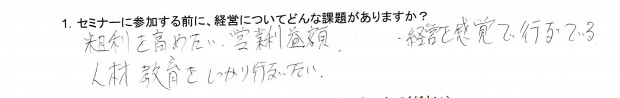 1. セミナーに参加する前に、経営についてどんな課題がありますか？
粗利を高めたい．営業利益額． ・経営を感覚で行なっている
人材教育をしっかり行ないたい．